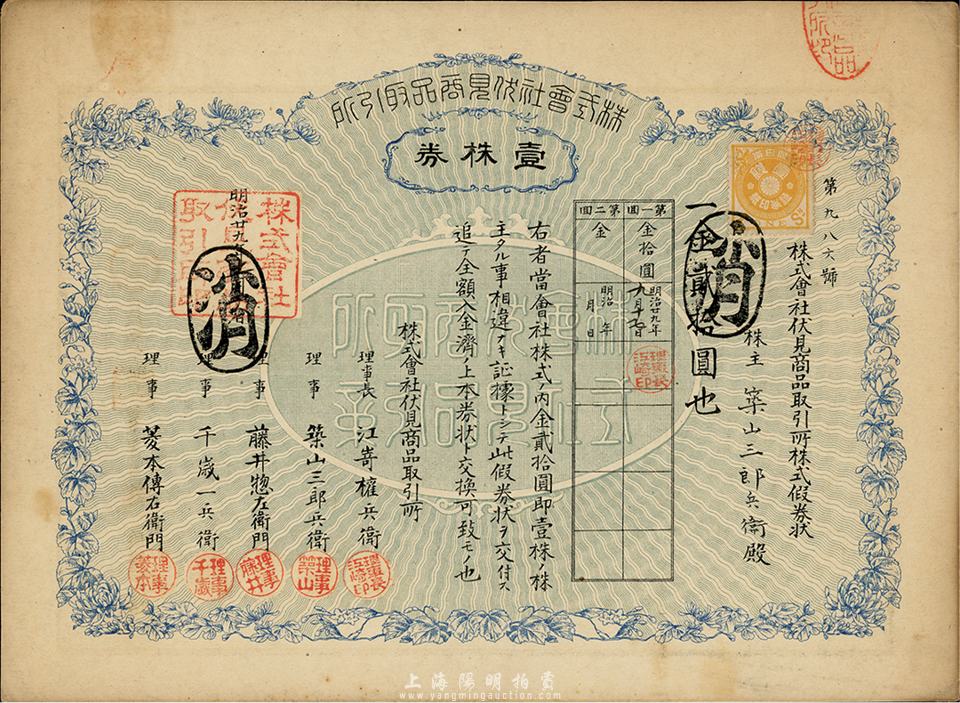 株式會社伏見商品取引所
壹株券
第九八六號
株式會社伏見商品取引所株式假券狀
株主 築山三郎兵衛殿
一金貳拾圓也
消
第一回
金拾圓
明治廿九年
九月十七日
第二回
金
明治 年
月 日
右者當會社株式ノ内金貳拾圓即壹株ノ株
主タル事相違ナキ証據トシテ此假券狀ヲ交付ス
追テ全額入金濟ノ上本券狀ト交換可致モノ也
株式會社伏見商品取引所
明治廿九年
消
理事長 江嵜權兵衛
理事 築山三郎兵衛
理事 藤井惣左衛門
理事 千歳一兵衛
理事 菱本傳右衛門
理事長江崎印
理事築山
理事藤井
理事千歳
理事菱本
上海陽明拍賣
www.yangmingauction.com